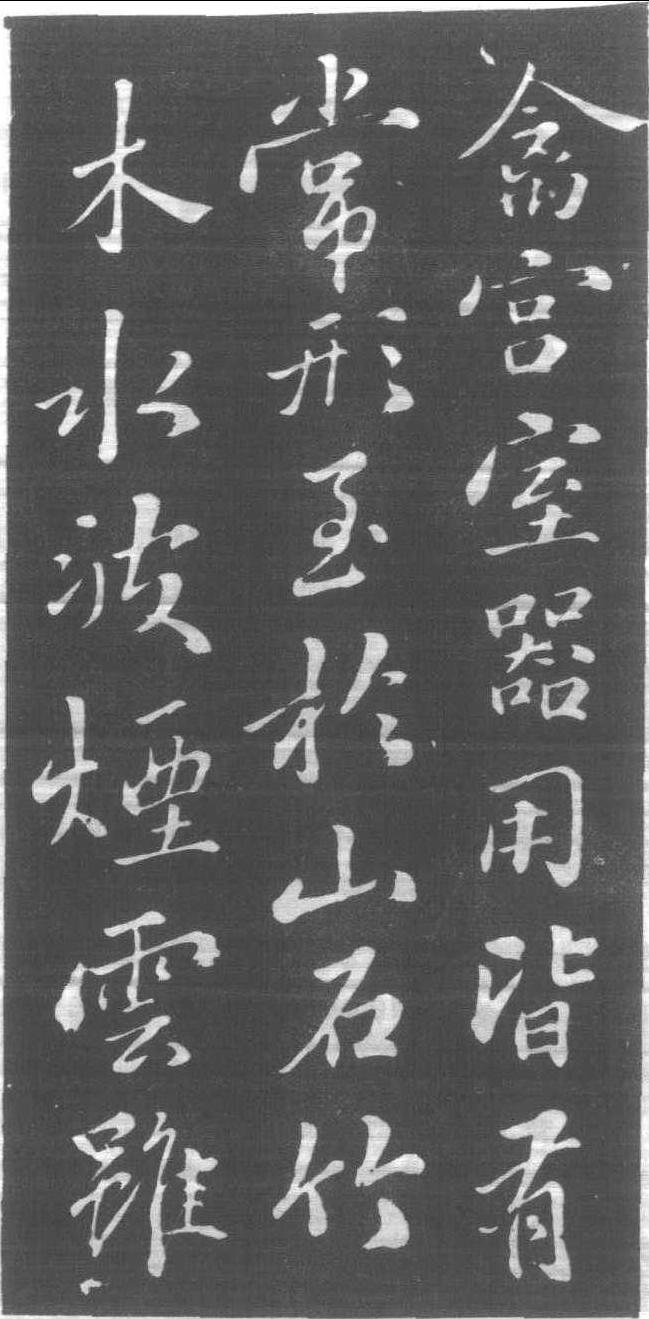 禽宮室器用皆有
常形至於山石竹
木水波煙雲雖